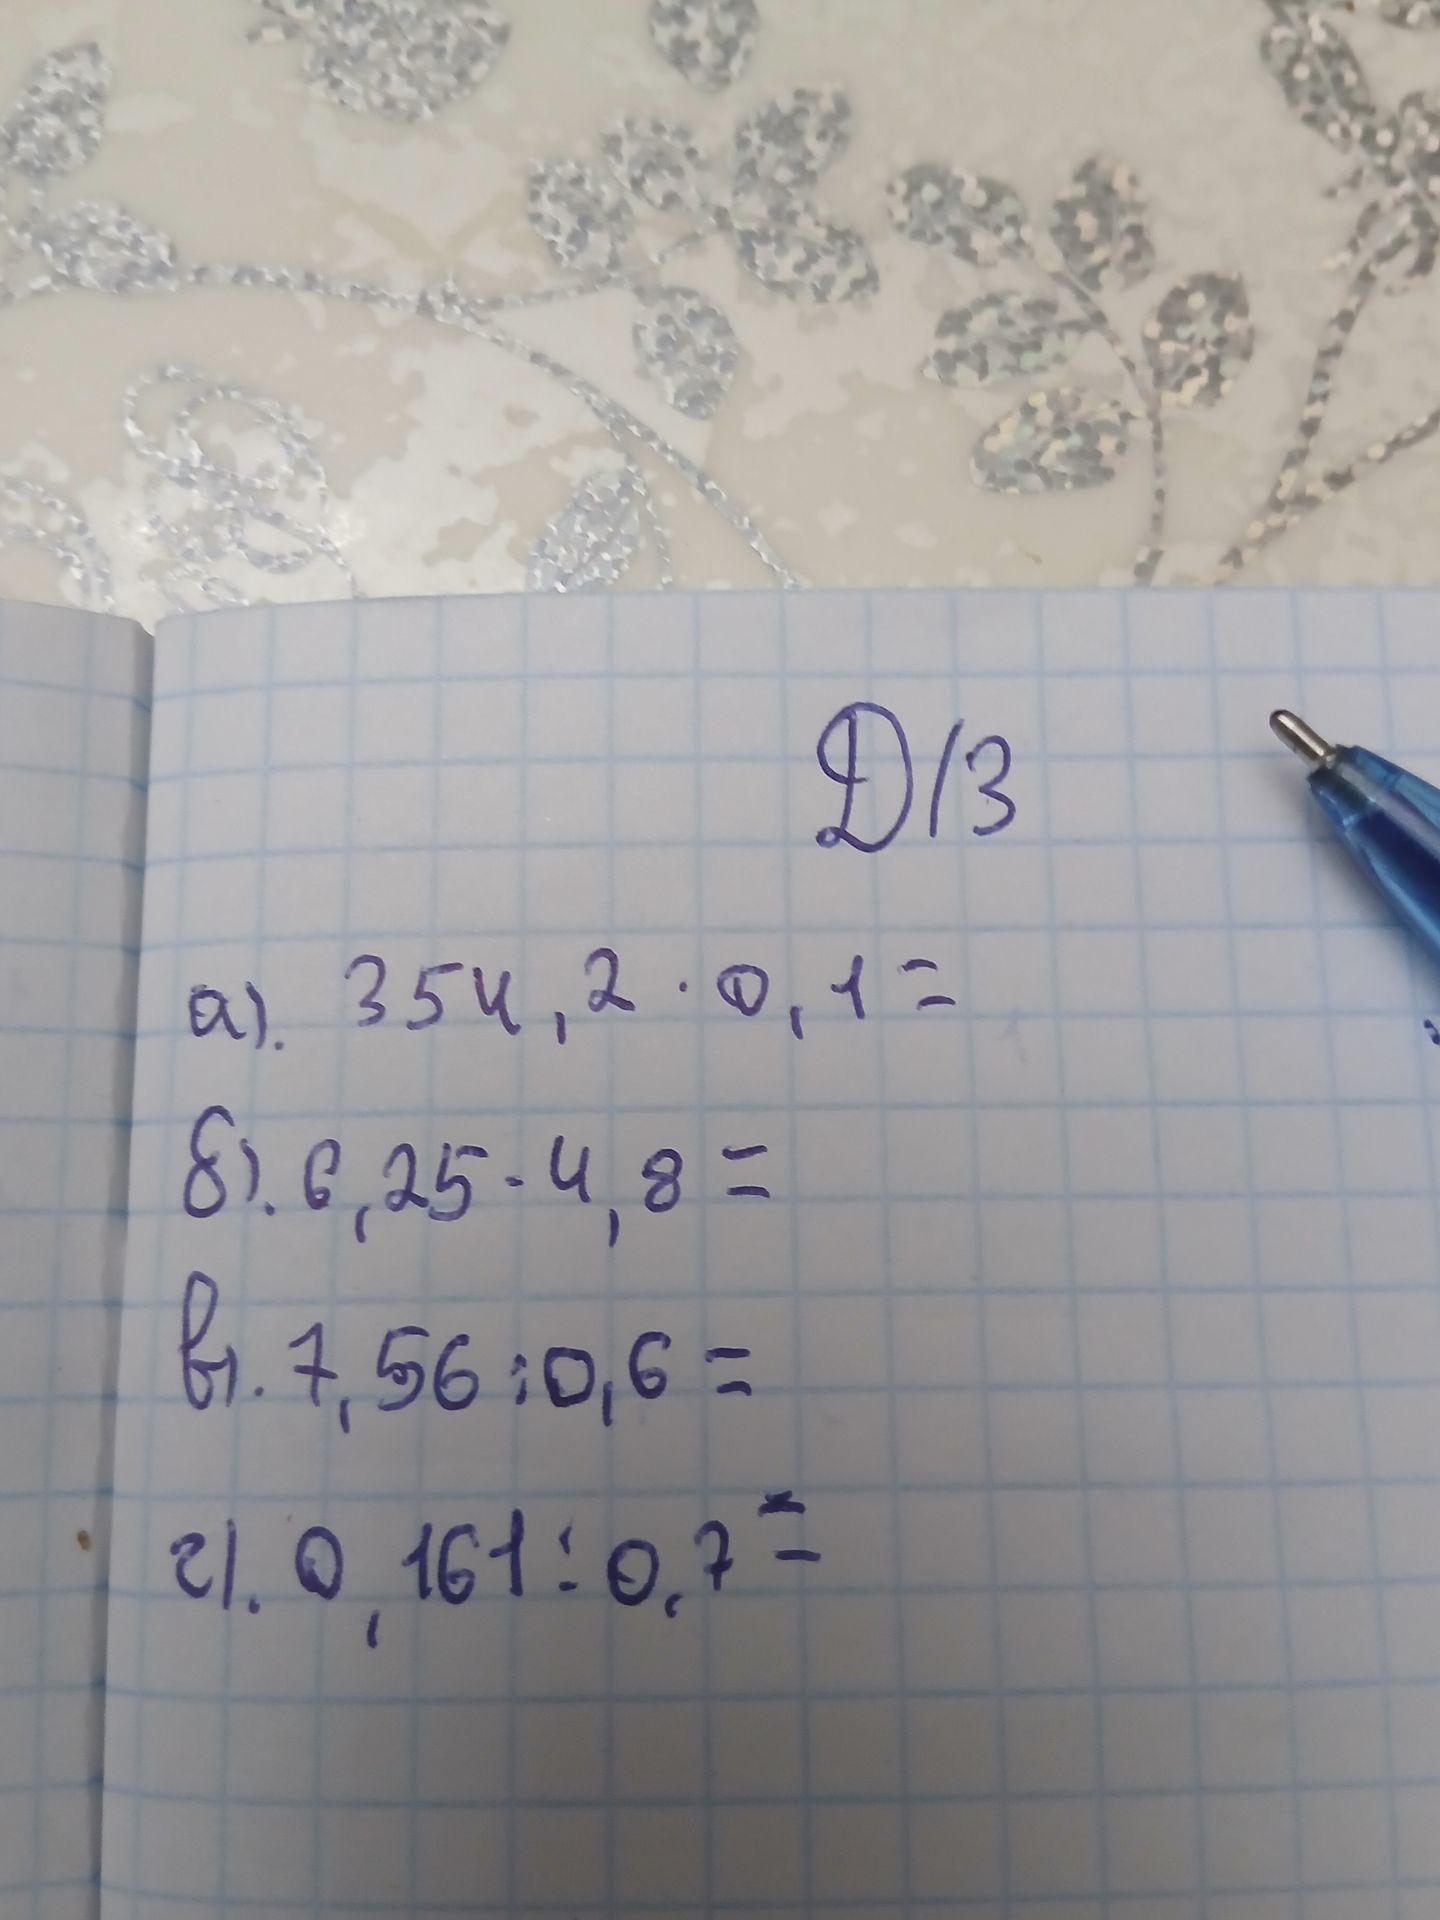 Д/З
а). 354,2 · 0,1 =
б). 6,25 · 4,8 =
в). 7,56 : 0,6 =
г). 0,161 : 0,7 =